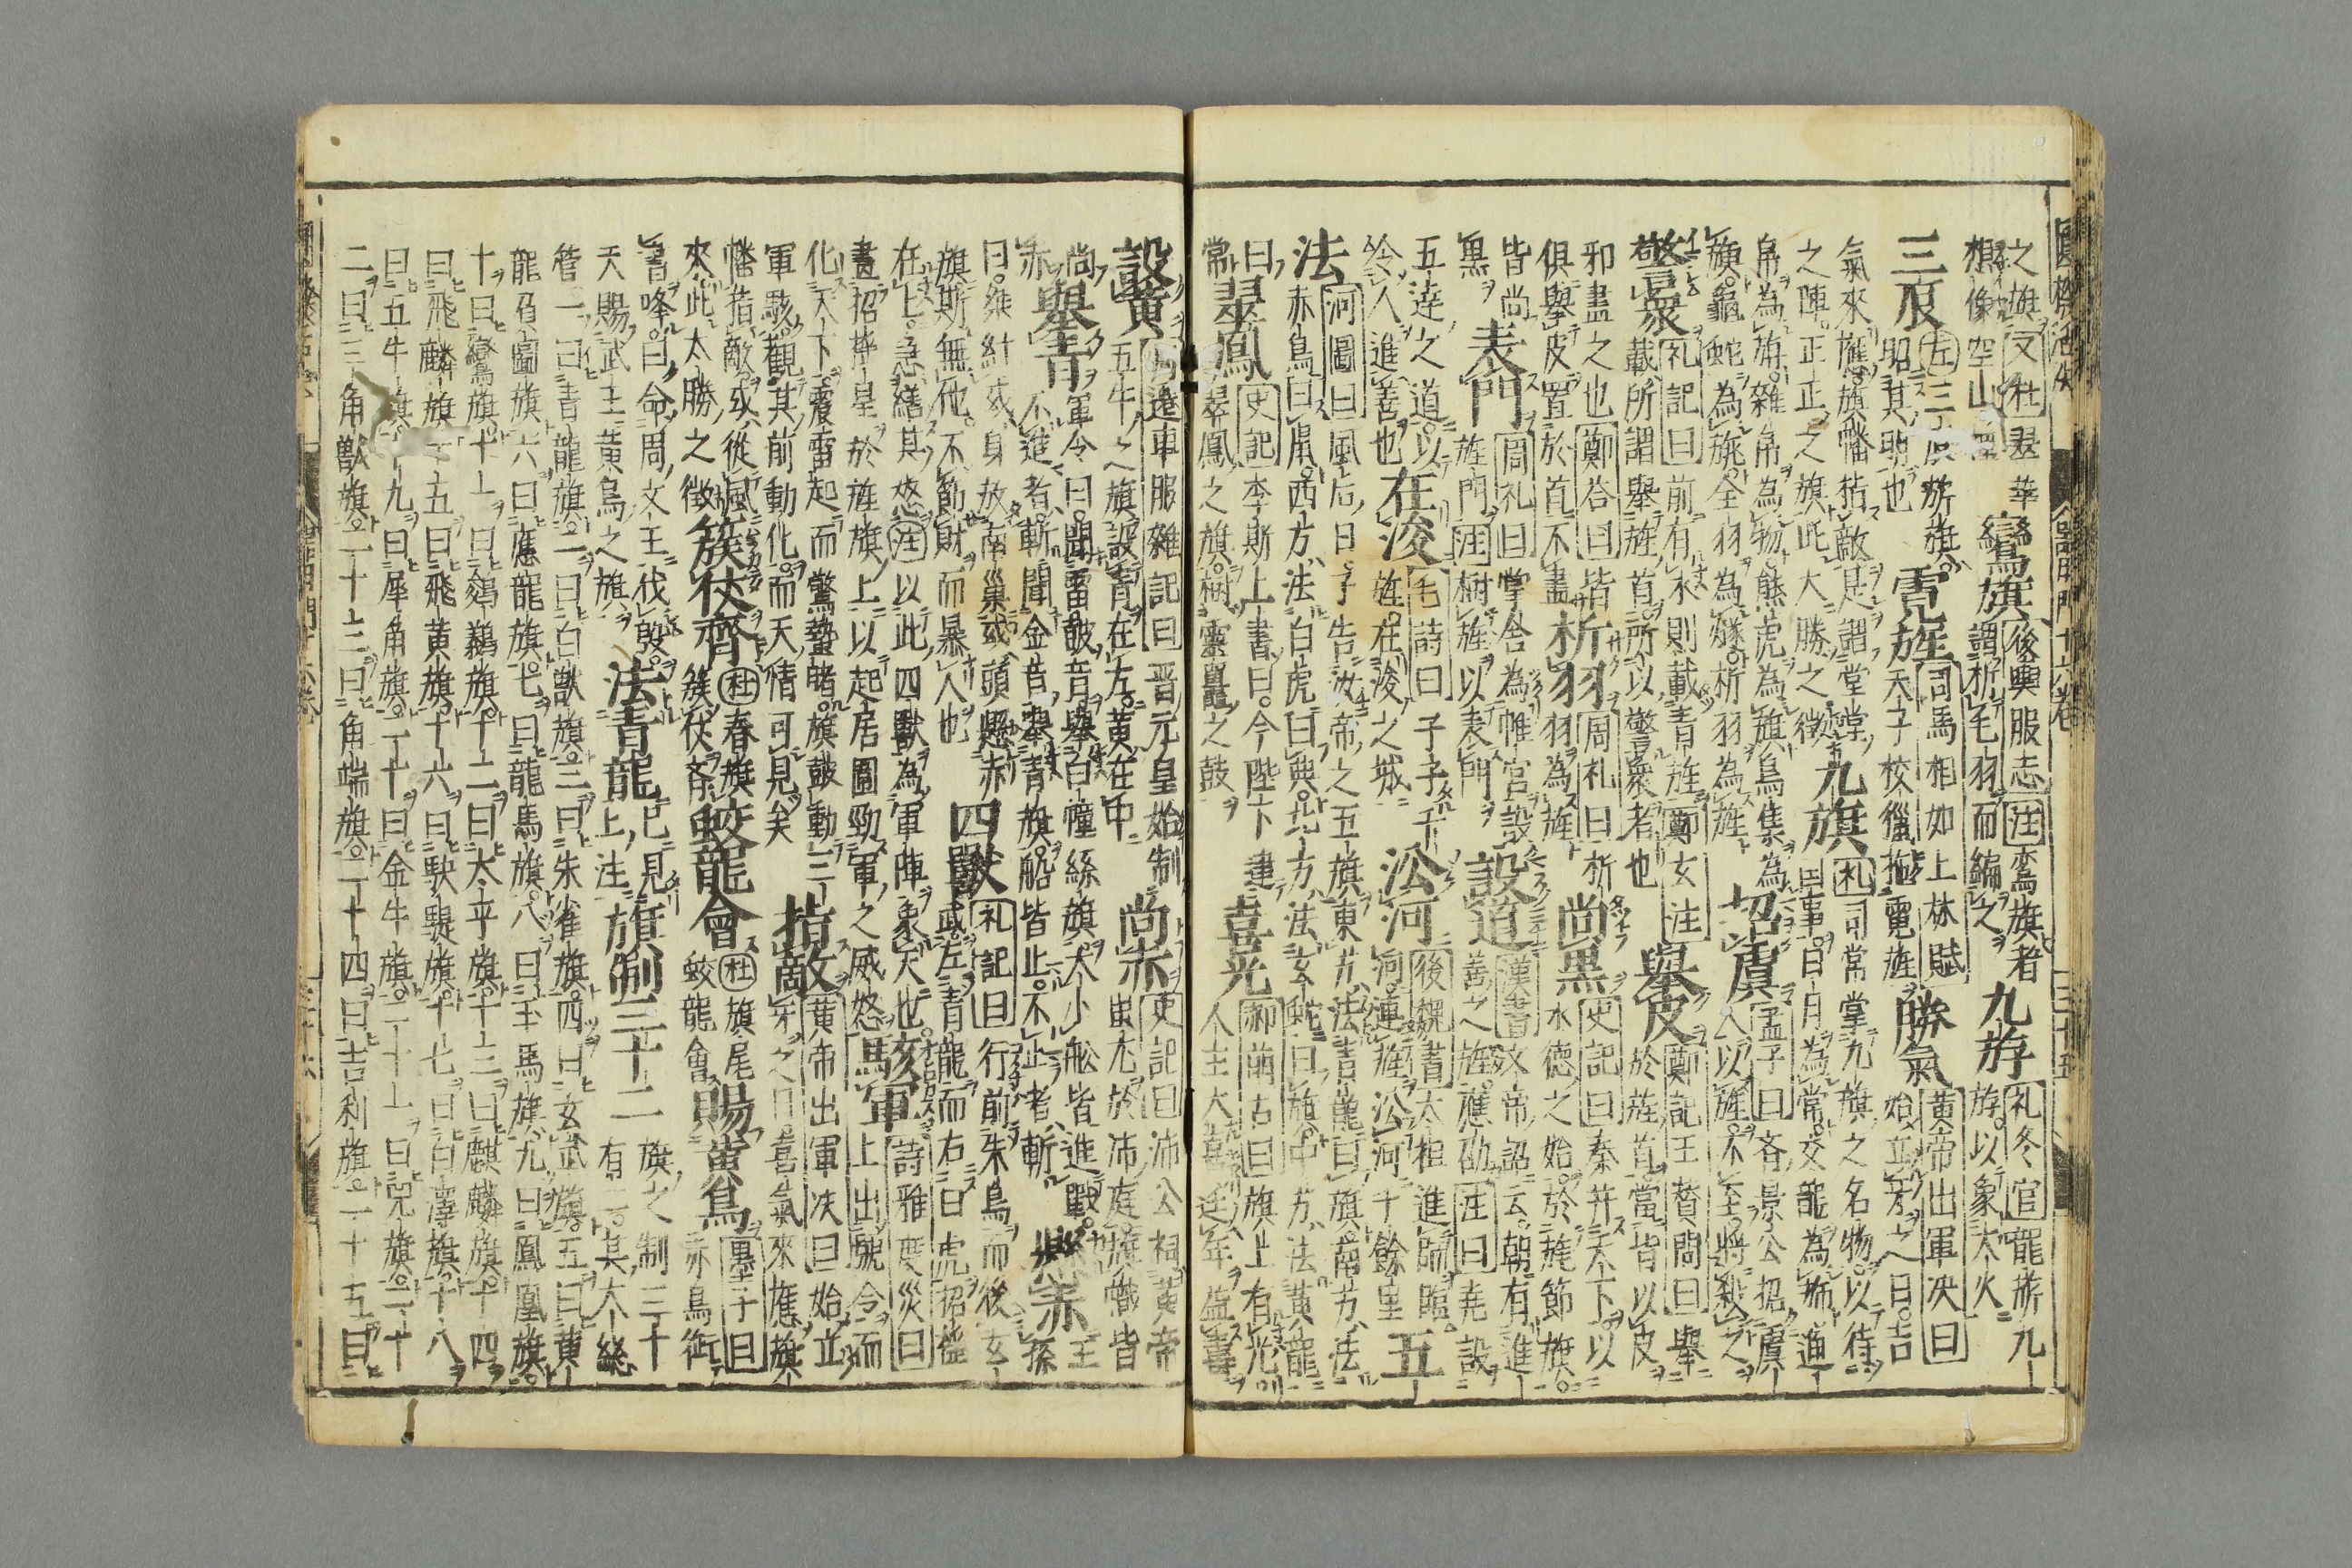 之旗又杜翠華鸞旗後輿服志注鸞旗者九斿礼冬官龍旂九
想像空山謂析毛羽而編之斿以象大火
三辰左三辰旂旗霓旌司馬相如上林賦勝氣黄帝出軍决曰
昭其明也天子校獵拖霓旌始立牙之日吉
氣來應旗幡指敵是謂堂堂九旗礼司常掌九旗之名物以待
之陣正正之旗此大勝之徴国事日月為常交龍為旂通
帛為旃雜帛為物熊虎為旗鳥隼為招虞孟子曰斉景公招虞
旟龜蛇為旐全羽為旞析羽為旌人以旌不至將殺之
警衆礼記曰前有水則載青旌鄭玄注舉皮鄭記王賛問曰舉
載所謂舉旌首所以警衆者也於旌首當皆以皮
邪盡之也鄭答曰皆析羽周礼曰析尚黒史記曰秦并天下以
俱舉皮置於首不畫羽為旌水德之始於旄節旗
皆尚表門周礼曰掌舍為帷宮設設道漢書文帝詔云朝有進
黒旌門注樹旌以表門善之旌應劭注曰堯設
五達之道以在浚毛詩曰子子干沿河後魏書太祖進師臨五
令人進善也旌在浚之城河連旌沿河千餘里
法河圖曰風后曰予告汝帝之五旗東方法青龍曰旗南方法
赤鳥曰鼡西方法白虎曰典北方法玄蛇曰旗中方法黄龍
曰翠鳳史記李斯上書曰今陛下建喜光郭前古曰旗上有光
常翠鳳之旗樹靈鼉之鼓人主大喜延年益壽
設黄遠車服雜記曰晋元皇始制尚赤史記曰沛公祠黄帝
五牛之旗設青在左黄在中蚩尤於沛庭旗幟皆
尚舉青軍令曰聞雷鼓音舉白幢絳旗大小舩皆進戰懸赤王
赤不進者斬聞金音舉青旗船皆止不止者斬孫
曰維紂或身放南巢或頭懸赤四獸礼記曰行前朱鳥而後玄
旗斯無他不節財而暴人也武左青龍而右白虎招揺
在上急繕其怒注以此四獸為軍陣象天也駭軍詩雅度災曰
畫招揺星於旌旗上以起居圖勁軍之威怒上出號令而
化天下震雷起而驚蟄睹旗鼓動三指敵黄帝出軍决曰始立
軍駭觀其前動化而天情可見矣牙之日喜氣來應旗
幡指敵或從風簇仗齊杜春旗蛟龍會杜旗尾賜黄鳥墨子曰
來此大勝之徴簇仗斉蛟龍會赤鳥銜
書啄曰命周文王伐殷法青龍已見旗制三十二旗之制三十
天賜武王黄鳥之旗上注有二其大絲
管一曰青龍旗二曰白獸旗三曰朱雀旗四曰玄武旗五曰黄
龍負圖旗六曰應龍旗七曰龍馬旗八曰玉馬旗九曰鳳凰旗
十曰鸞旗十一曰鵕鸃旗十二曰太平旗十三曰麒麟旗十四
曰飛麟旗十五曰飛黄旗十六曰駃騠旗十七曰白澤旗十八
曰五牛旗十九曰犀角旗二十曰金牛旗二十一曰兕旗二十
二曰三角獸旗二十三曰角端旗二十四曰吉利旗二十五曰